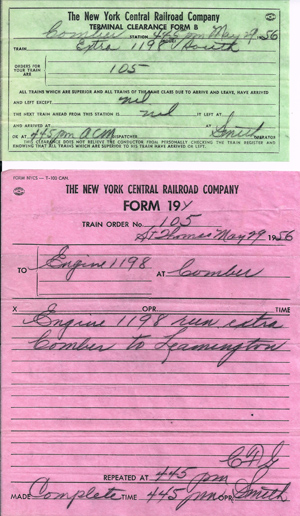 The New York Central Railroad Company
TERMINAL CLEARANCE FORM B
Comber STATION 445 pm May 29 1956
TRAIN Extra 1198 South
ORDERS FOR YOUR TRAIN ARE 105
ALL TRAINS WHICH ARE SUPERIOR AND ALL TRAINS OF THE SAME CLASS DUE TO ARRIVE AND LEAVE, HAVE ARRIVED
AND LEFT EXCEPT nil
THE NEXT TRAIN AHEAD FROM THIS STATION IS nil IT LEFT AT
AND ARRIVED AT AT Smith
OK AT 445 pm ACM DISPATCHER OPERATOR
THIS CLEARANCE DOES NOT RELIEVE THE CONDUCTOR FROM PERSONALLY CHECKING THE TRAIN REGISTER AND
KNOWING THAT ALL TRAINS WHICH ARE SUPERIOR TO HIS TRAIN HAVE ARRIVED OR LEFT.
THE NEW YORK CENTRAL RAILROAD COMPANY
FORM 19Y
TRAIN ORDER No. 105
St Thomas May 29 1956
TO Engine 1198 AT Comber
X OPR TIME
Engine 1198 run extra
Comber to Leamington
REPEATED AT 445 pm
MADE Complete TIME 445 pm OPR Smith